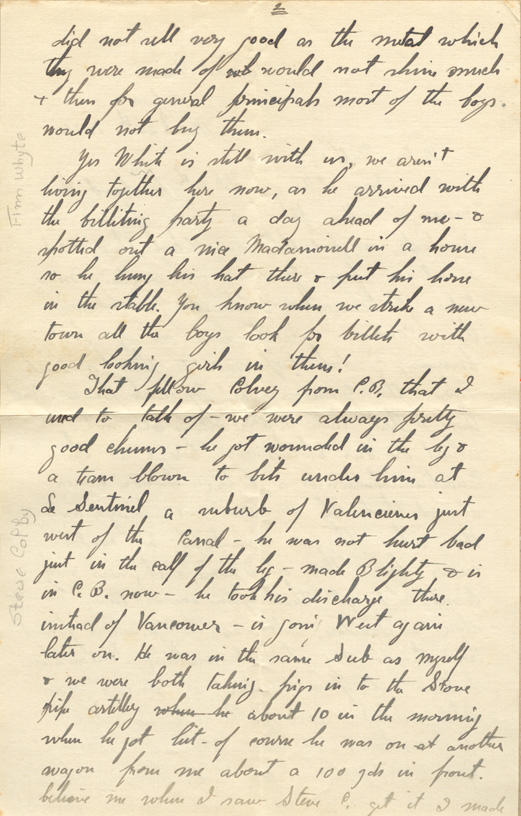 2
did not sell very good as the metal which
they were made of would not shine much
+ then for general principals most of the boys.
would not buy them.
Yes White is still with us, we aren't
living together here now, as he arrived with
the billiting party a day ahead of me - &
spotted out a nice Madamoinell in a house
so he hung his hat there & put his horse
in the stable. You know when we strike a new
town all the boys look for billets with
good looking girls in them!
That fellow Colvey from C.B. that I
used to talk of - we were always pretty
good chums - he got wounded in the leg &
a team blown to bits under him at
Le Sentinel a suburb of Valenciennes just
west of the Canal - he was not hurt bad
just in the calf of the leg - made Blighty & is
in C.B. now - he took his discharge there
instead of Vancouver - is goin' West again
later on. He was in the same Sub as myself
& we were both taking pigs in to the Stove
pipe artillery when he about 10 in the morning
when he got hit - of course he was on at another
wagon from me about a 100 yds in front.
believe me when I saw Steve C. get it I made
Finn Whyte
Steve Colby